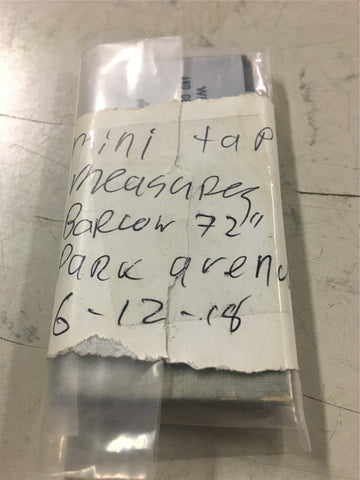 mini tap
measures
Barlow 72"
Park avenu
6-12-18